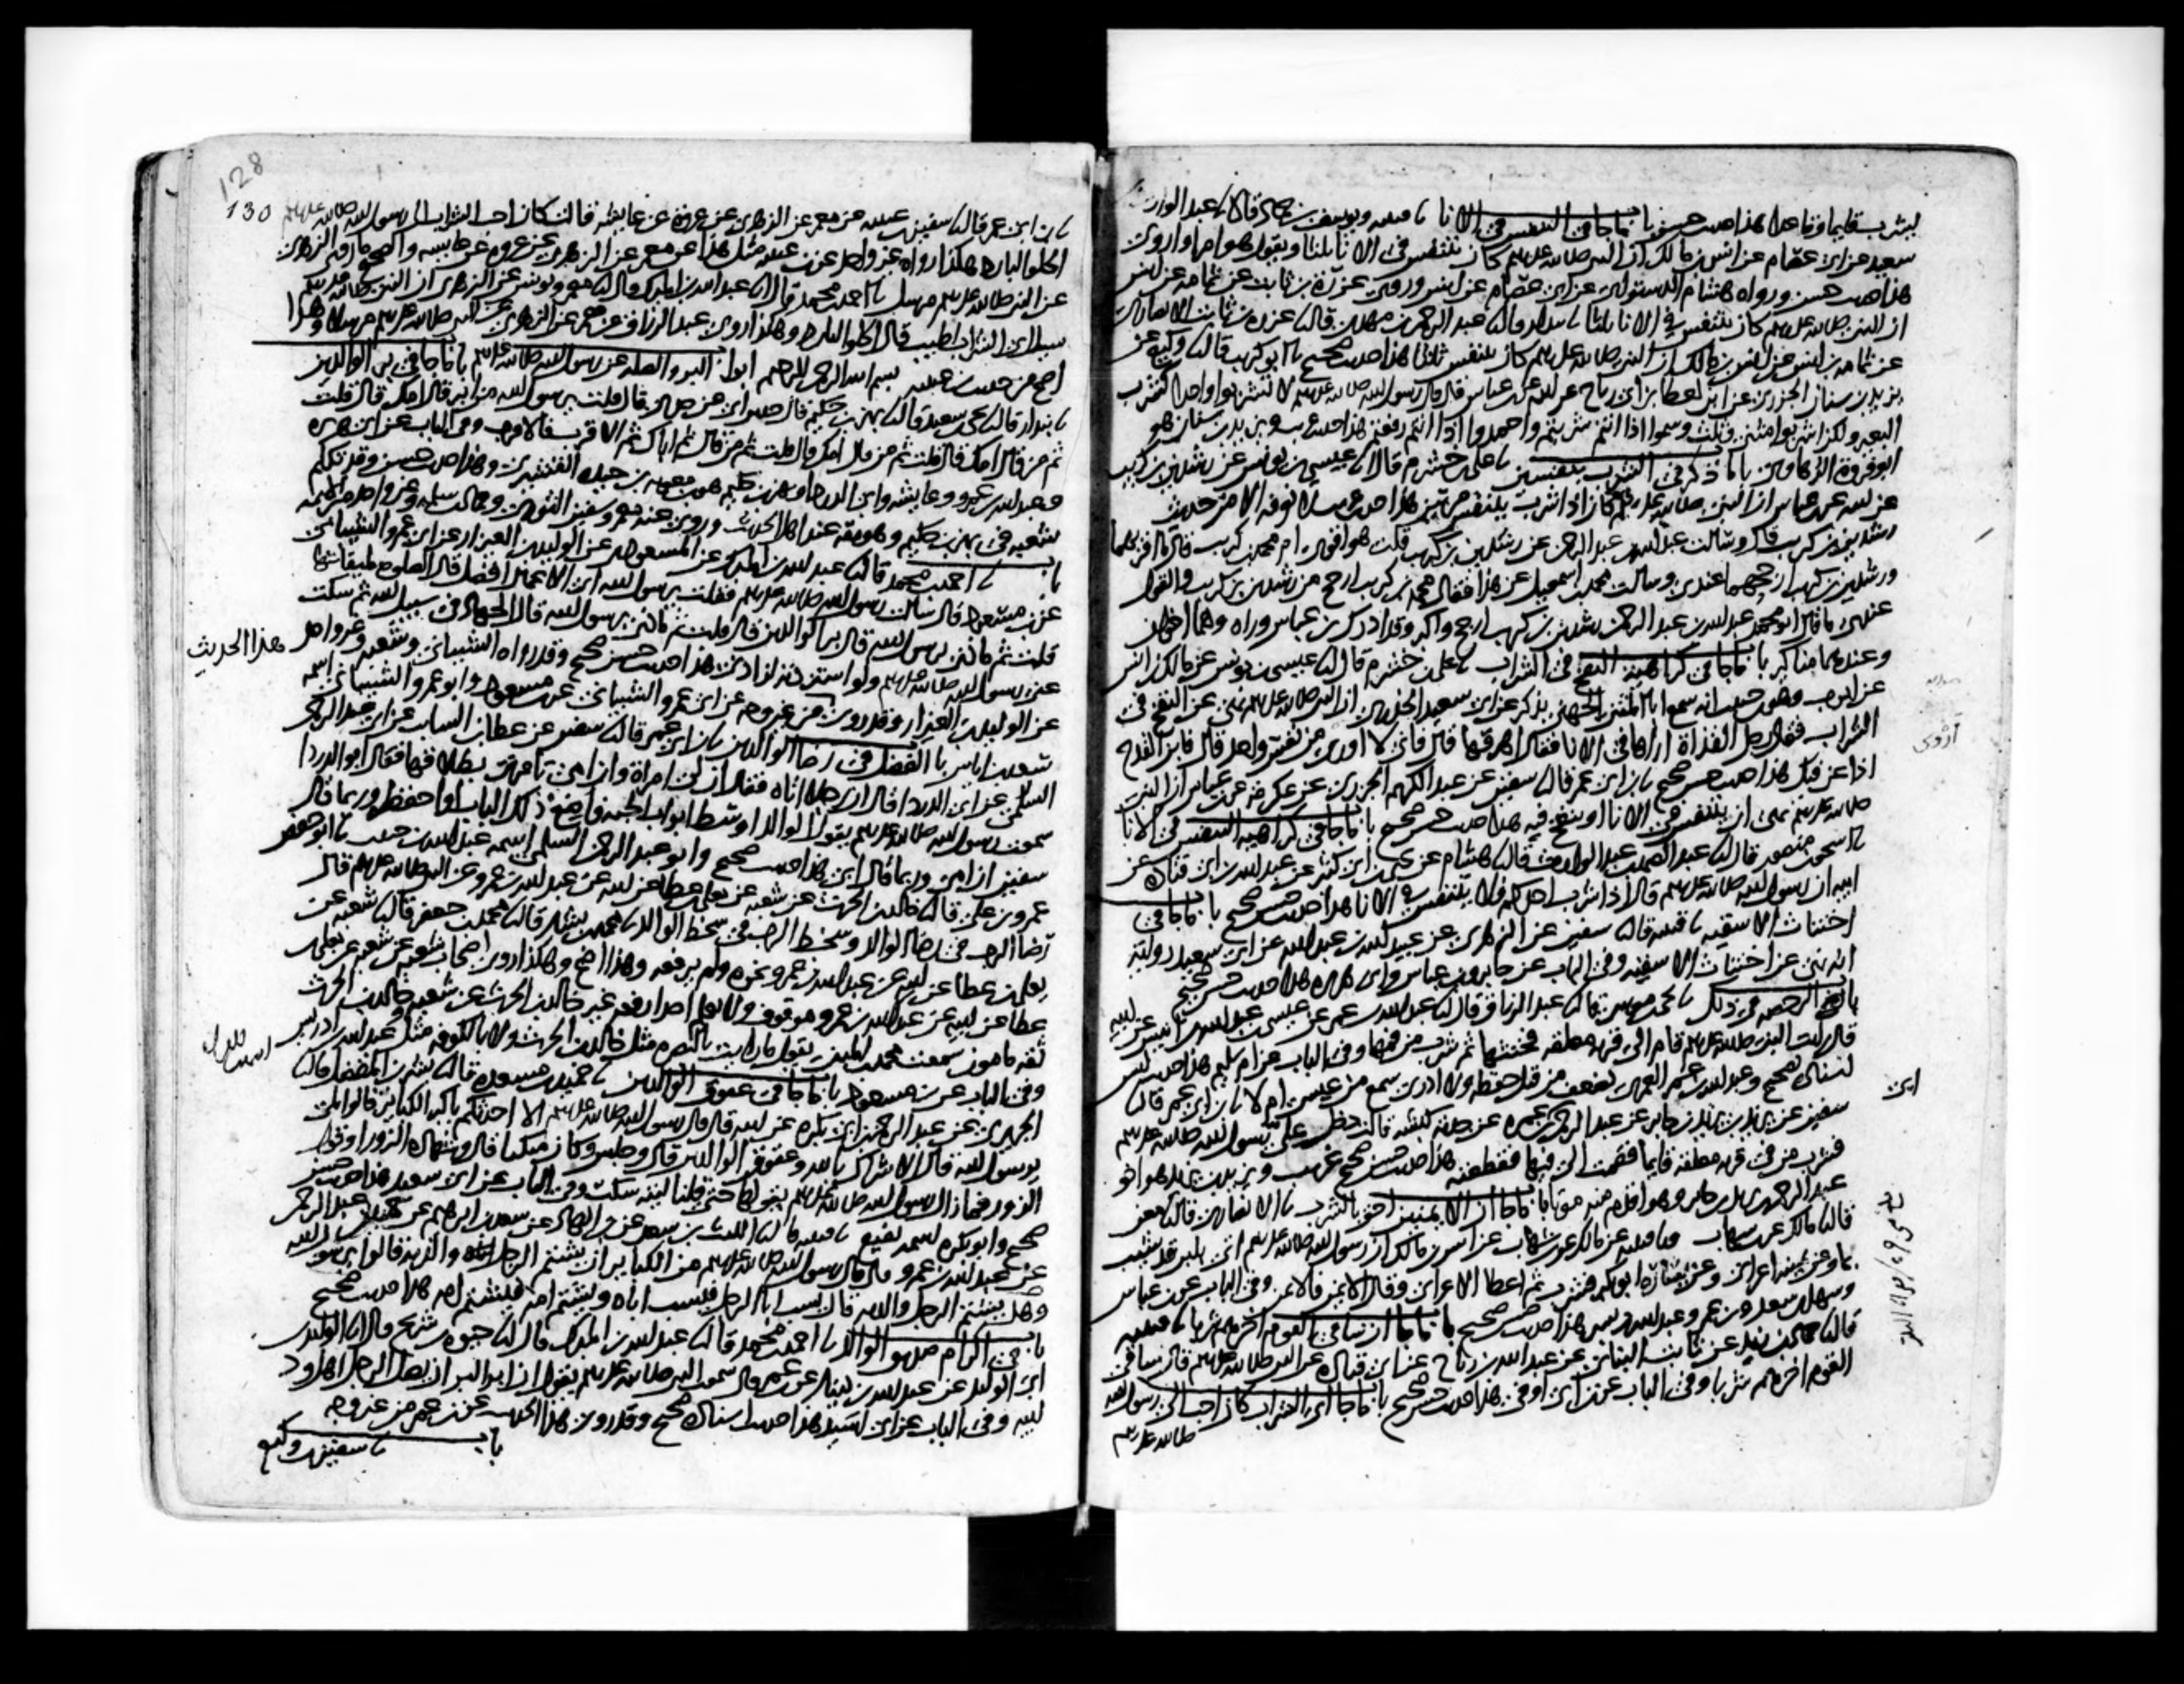 يشرب قايما وقاعدا هذا حديث حسن باب ما جا في التنفس في الانا نا قتيبة ويوسف بن حماد قالا نا عبد الوارث بن
سعيد عن ابي عصام عن انس بن مالك ان النبي صلى الله عليه وسلم كان يتنفس في الانا ثلثا ويقول هو امرا واروى
هذا حديث حسن ورواه هشام الدستوائي عن ابي عصام عن انس وروى عزرة بن ثابت عن ثمامة عن انس
ان النبي صلى الله عليه وسلم كان يتنفس في الانا ثلثا نا بندار قال نا عبد الرحمن بن مهدي قال نا عزرة بن ثابت الانصاري
عن ثمامة بن انس عن انس بن مالك ان النبي صلى الله عليه وسلم كان يتنفس ثلاثا هذا حديث صحيح نا ابو كريب قال نا وكيع عن
يزيد بن سنان الجزري عن ابن لعطا بن ابي رباح عن ابيه عن ابن عباس قال قال رسول الله صلى الله عليه وسلم لا تشربوا واحدا كشرب
البعير ولكن اشربوا مثنى وثلث وسموا اذا انتم شربتم واحمدوا اذا انتم رفعتم هذا حديث غريب ويزيد بن سنان هو
ابو فروة الرهاوي باب ما ذكر في الشرب بنفسين نا علي بن خشرم قال نا عيسى بن يونس عن رشدين بن كريب
عن ابيه عن ابن عباس ان النبي صلى الله عليه وسلم كان اذا شرب يتنفس مرتين هذا حديث غريب لا نعرفه الا من حديث
رشدين بن كريب قال وسالت عبد الله بن عبد الرحمن عن رشدين بن كريب قلت هو اقوى ام محمد بن كريب قال ما اقربهما
ورشدين بن كريب ارجحهما عندي وسالت محمد بن اسمعيل عن هذا فقال محمد بن كريب ارجح من رشدين بن كريب والقول
عندي ما قال ابو محمد عبد الله بن عبد الرحمن رشدين بن كريب ارجح واكبر وقد ادرك ابن عباس وراه وهما اخوان
وعندهما مناكير باب ما جا في كراهية النفخ في الشراب نا علي بن خشرم قال نا عيسى بن يونس عن مالك بن انس
عن ايوب وهو ابن حبيب انه سمع ابا المثنى الجهني يذكر عن ابي سعيد الخدري ان النبي صلى الله عليه وسلم نهى عن النفخ في
الشراب فقال رجل القذاة اراها في الانا فقال اهرقها قال فاني لا اروى من نفس واحد قال فابن القدح
اذا عن فيك هذا حديث حسن صحيح نا ابن ابي عمر قال نا سفين عن عبد الكريم الجزري عن عكرمة عن ابن عباس ان النبي
صلى الله عليه وسلم نهى ان يتنفس في الانا او ينفخ فيه هذا حديث حسن صحيح باب ما جا في كراهية التنفس في الانا
نا اسحق بن منصور قال نا عبد الصمد بن عبد الوارث قال نا هشام عن يحيى بن ابي كثير عن عبد الله بن ابي قتادة عن
ابيه ان رسول الله صلى الله عليه وسلم قال اذا شرب احدكم فلا يتنفس في الانا هذا حديث حسن صحيح باب ما جا في
اختناث الاسقية نا قتيبة قال نا سفين عن الزهري عن عبيد الله بن عبد الله عن ابي سعيد رواية
انه نهى عن اختناث الاسقية وفي الباب عن جابر وابن عباس وابي هريرة هذا حديث حسن صحيح
باب الرخصة في ذلك نا يحيى بن موسى قال نا عبد الرزاق قال نا عبد الله بن عمر عن عيسى بن عبد الله بن انيس عن ابيه
قال رايت النبي صلى الله عليه وسلم قام الى قربة معلقة فخنثها ثم شرب من فيها وفي الباب عن ام سليم هذا حديث ليس
اسناده بصحيح وعبد الله بن عمر العمري يضعف من قبل حفظه ولا ادري سمع من عيسى ام لا نا ابن ابي عمر قال نا
سفين عن يزيد بن يزيد بن جابر عن عبد الرحمن بن ابي عمرة عن جدته كبشة قالت دخل علي رسول الله صلى الله عليه وسلم
فشرب من في قربة معلقة قايما فقمت الى فيها فقطعته هذا حديث حسن صحيح غريب ويزيد بن يزيد هو اخو
عبد الرحمن بن يزيد بن جابر وهو اقدم منه موتا باب ما جا ان الايمنين احق بالشرب نا الانصاري قال نا معن
قال نا مالك عن ابن شهاب ونا قتيبة عن مالك عن ابن شهاب عن انس بن مالك ان رسول الله صلى الله عليه وسلم اتي بلبن قد شيب
بماء وعن يمينه اعرابي وعن يساره ابو بكر فشرب ثم اعطا الاعرابي وقال الايمن فالايمن وفي الباب عن ابن عباس
وسهل بن سعد وابن عمر وعبد الله بن بسر هذا حديث حسن صحيح باب ما جا ان ساقي القوم اخرهم شربا نا قتيبة
قال نا حماد بن زيد عن ثابت البناني عن عبد الله بن رباح عن ابي قتادة عن النبي صلى الله عليه وسلم قال ساقي
القوم اخرهم شربا وفي الباب عن ابن ابي اوفى هذا حديث حسن صحيح باب ما جا اي الشراب كان احب الى رسول الله
صلى الله عليه وسلم
ابن
128
130
نا ابن ابي عمر قال نا سفين بن عيينة عن معمر عن الزهري عن عروة عن عايشة قالت كان احب الشراب الى رسول الله صلى الله عليه وسلم
الحلو البارد هكذا رواه غير واحد عن ابن عيينة مثل هذا عن معمر عن الزهري عن عروة عن عايشة والصحيح ما روى الزهري
عن النبي صلى الله عليه وسلم مرسلا نا احمد بن محمد قال نا عبد الله بن المبارك قال نا معمر ويونس عن الزهري ان النبي صلى الله عليه وسلم
سيل اي الشراب اطيب قال الحلو البارد وهكذا روى عبد الرزاق عن معمر عن الزهري عن النبي صلى الله عليه وسلم مرسلا وهذا
اصح من حديث ابن عيينة بسم الله الرحمن الرحيم ابواب البر والصلة عن رسول الله صلى الله عليه وسلم باب ما جا في بر الوالدين
نا بندار قال نا يحيى بن سعيد قال نا بهز بن حكيم قال حدثني ابي عن جدي قال قلت يرسول الله من ابر قال امك قال قلت
ثم من قال امك قال قلت ثم من قال امك قال قلت ثم من قال ثم اباك ثم الاقرب فالاقرب وفي الباب عن ابي هريرة
وعبد الله بن عمرو وعايشة وابي الدرداء وبهز بن حكيم هو ابن معوية بن حيدة القشيري وهذا حديث حسن وقد تكلم
شعبة في بهز بن حكيم وهو ثقة عند اهل الحديث وروى عنه معمر وسفين الثوري وحماد بن سلمة وغير واحد من الايمة
باب نا احمد بن محمد قال نا عبد الله بن المبارك عن المسعودي عن الوليد بن العيزار عن ابي عمرو الشيباني
عن ابن مسعود قال سالت رسول الله صلى الله عليه وسلم فقلت يرسول الله اي الاعمال افضل قال الصلوة لميقاتها
قلت ثم ماذا يرسول الله قال بر الوالدين قال قلت ثم ماذا يرسول الله قال الجهاد في سبيل الله ثم سكت
عني رسول الله صلى الله عليه وسلم ولو استزدته لزادني هذا حديث حسن صحيح وقد رواه الشيباني وشعبة وغير واحد
هذا الحديث
عن الوليد بن العيزار وقد روي من غير وجه عن ابي عمرو الشيباني عن ابن مسعود وابو عمرو الشيباني اسمه
سعد بن اياس باب الفضل في رضا الوالدين نا ابن ابي عمر قال نا سفين عن عطا بن السايب عن ابي عبد الرحمن
السلمي عن ابي الدرداء قال ان رجلا اتاه فقال ان لي امراة وان امي تامرني بطلاقها فقال ابو الدرداء
سمعت رسول الله صلى الله عليه وسلم يقول الوالد اوسط ابواب الجنة فاضع ذلك الباب او احفظه وربما قال
سفين ان امي وربما قال ابي هذا حديث صحيح وابو عبد الرحمن السلمي اسمه عبد الله بن حبيب نا ابو حفص
عمرو بن علي قال نا خالد بن الحرث عن شعبة عن يعلى بن عطا عن ابيه عن عبد الله بن عمرو عن النبي صلى الله عليه وسلم قال
رضا الرب في رضا الوالد وسخط الرب في سخط الوالد نا محمد بن بشار قال نا محمد بن جعفر قال نا شعبة عن
يعلى بن عطا عن ابيه عن عبد الله بن عمرو نحوه ولم يرفعه وهذا اصح وهكذا روى اصحاب شعبة عن شعبة عن يعلى بن
عطا عن ابيه عن عبد الله بن عمرو موقوف ولا نعلم احدا رفعه غير خالد بن الحرث عن شعبة وخالد بن الحرث
ثقة مامون سمعت محمد بن المثنى يقول ما رايت بالبصرة مثل خالد بن الحرث ولا بالكوفة مثل عبد الله بن ادريس
وفي الباب عن ابن مسعود باب ما جا في عقوق الوالدين نا حميد بن مسعدة قال نا بشر بن المفضل قال نا
الجريري عن عبد الرحمن بن ابي بكرة عن ابيه قال قال رسول الله صلى الله عليه وسلم الا احدثكم باكبر الكباير قالوا بلى
يرسول الله قال الاشراك بالله وعقوق الوالدين قال وجلس وكان متكيا قال وشهادة الزور او قول
الزور فما زال رسول الله صلى الله عليه وسلم يقولها حتى قلنا ليته سكت وفي الباب عن ابي سعيد هذا حديث حسن
صحيح وابو بكرة اسمه نفيع نا قتيبة قال نا الليث بن سعد عن ابن الهاد عن سعد بن ابرهيم عن حميد بن عبد الرحمن
عن عبد الله بن عمرو قال قال رسول الله صلى الله عليه وسلم من الكباير ان يشتم الرجل والديه قالوا يرسول الله
وهل يشتم الرجل والديه قال نعم يسب ابا الرجل فيسب اباه ويشتم امه فيشتم امه هذا حديث صحيح
باب في اكرام صديق الوالد نا احمد بن محمد قال نا عبد الله بن المبارك قال نا حيوة بن شريح قال نا الوليد بن
ابي الوليد عن عبد الله بن دينار عن ابن عمر قال سمعت النبي صلى الله عليه وسلم يقول ان ابر البر ان يصل الرجل اهل ود
ابيه وفي الباب عن ابي اسيد هذا حديث اسناده صحيح وقد روي هذا الحديث عن ابن عمر من غير وجه
باب نا سفين بن وكيع